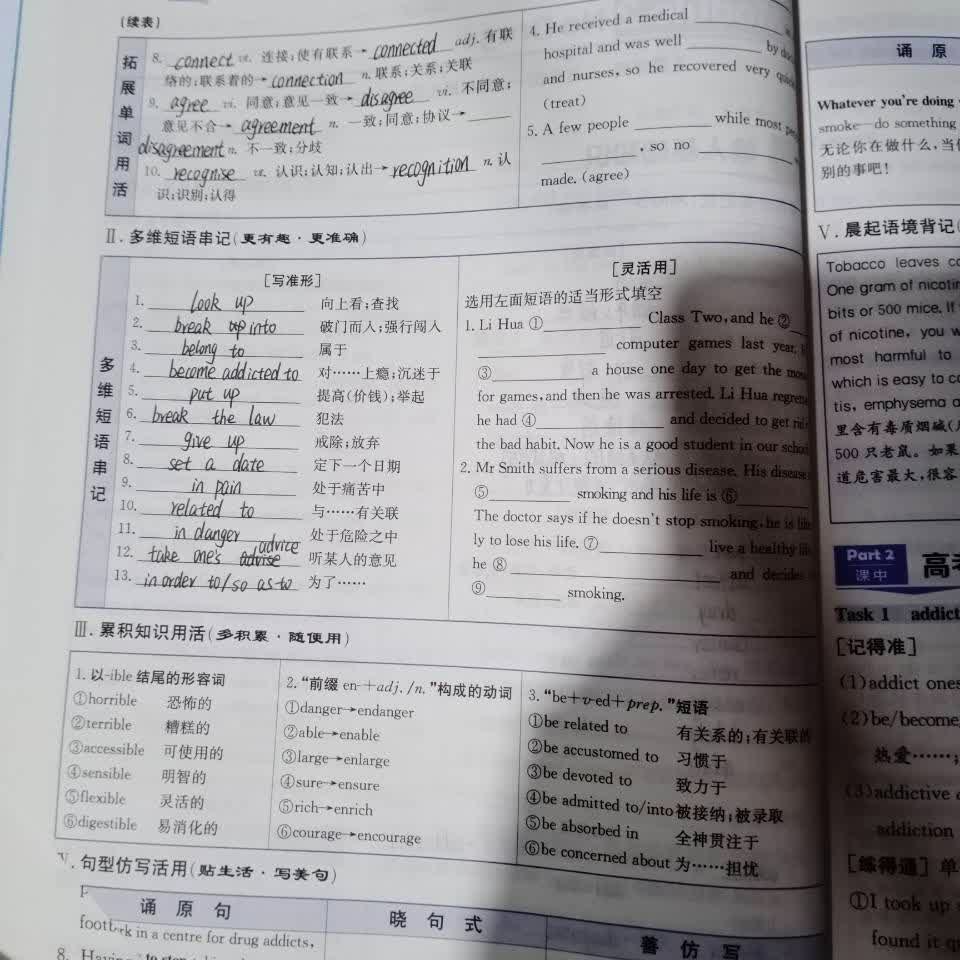 (续表)
拓展单词用活
8. connect vt. 连接;使有联系→ connected adj. 有联
络的;联系着的→ connection n. 联系;关系;关联
9. agree vi. 同意;意见一致→ disagree vi. 不同意;
意见不合→ agreement n. 一致;同意;协议→
disagreement n. 不一致;分歧
10. recognise vt. 认识;认知;认出→ recognition n. 认
识;识别;认得
4. He received a medical
hospital and was well by
and nurses, so he recovered very
(treat)
5. A few people while most
, so no
made. (agree)
Ⅱ. 多维短语串记(更有趣·更准确)
多维短语串记
[写准形]
1. look up 向上看;查找
2. break into 破门而入;强行闯入
3. belong to 属于
4. become addicted to 对……上瘾;沉迷于
5. put up 提高(价钱);举起
6. break the law 犯法
7. give up 戒除;放弃
8. set a date 定下一个日期
9. in pain 处于痛苦中
10. related to 与……有关联
11. in danger 处于危险之中
12. take one's advice 听某人的意见
13. in order to/so as to 为了……
[灵活用]
选用左面短语的适当形式填空
1. Li Hua ① Class Two, and he ②
computer games last year.
③ a house one day to get the
for games, and then he was arrested. Li Hua
he had ④ and decided to get
the bad habit. Now he is a good student in our
2. Mr Smith suffers from a serious disease. His
⑤ smoking and his life is ⑥
The doctor says if he doesn't stop smoking, he is
ly to lose his life. ⑦ live a healthy
he ⑧ and decides
⑨ smoking.
Ⅲ. 累积知识用活(多积累·随使用)
1. 以-ible 结尾的形容词
①horrible 恐怖的
②terrible 糟糕的
③accessible 可使用的
④sensible 明智的
⑤flexible 灵活的
⑥digestible 易消化的
2. “前缀 en-+adj./n.”构成的动词
①danger→endanger
②able→enable
③large→enlarge
④sure→ensure
⑤rich→enrich
⑥courage→encourage
3. “be+v-ed+prep.”短语
①be related to 有关系的;有关联的
②be accustomed to 习惯于
③be devoted to 致力于
④be admitted to/into 被接纳;被录取
⑤be absorbed in 全神贯注于
⑥be concerned about 为……担忧
句型仿写活用(贴生活·写美句)
诵原句 晓句式 善仿写
in a centre for drug addicts,
8.
诵原
Whatever you're doing
smoke—do something
无论你在做什么,当
别的事吧!
Ⅴ. 晨起语境背记
Tobacco leaves
One gram of
bits or 500 mice. If
of nicotine, you
most harmful to
which is easy to
tis, emphysema
里含有毒质烟碱
500 只老鼠。如果
道危害最大,很容
Part 2
课中
Task 1
[记得准]
(1)addict
(2)be/become
热爱……;
(3)addictive
addiction
[练得通] 单
①I took up
found it